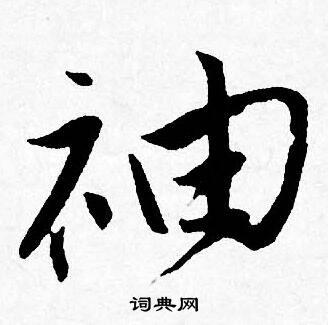 袖
词典网